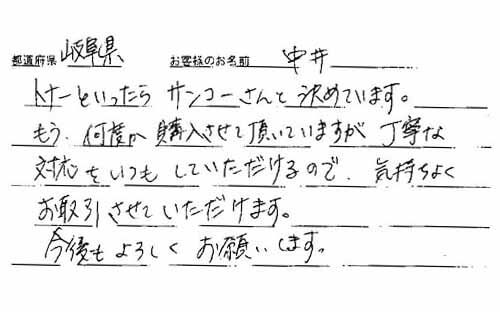 都道府県 岐阜県 お客様のお名前 中井
トナーといったら サンコーさんと決めています。
もう、何度か購入させて頂いていますが丁寧な
対応をいつもしていただけるので、気持ちよく
お取引させていただけます。
今後もよろしくお願いします。